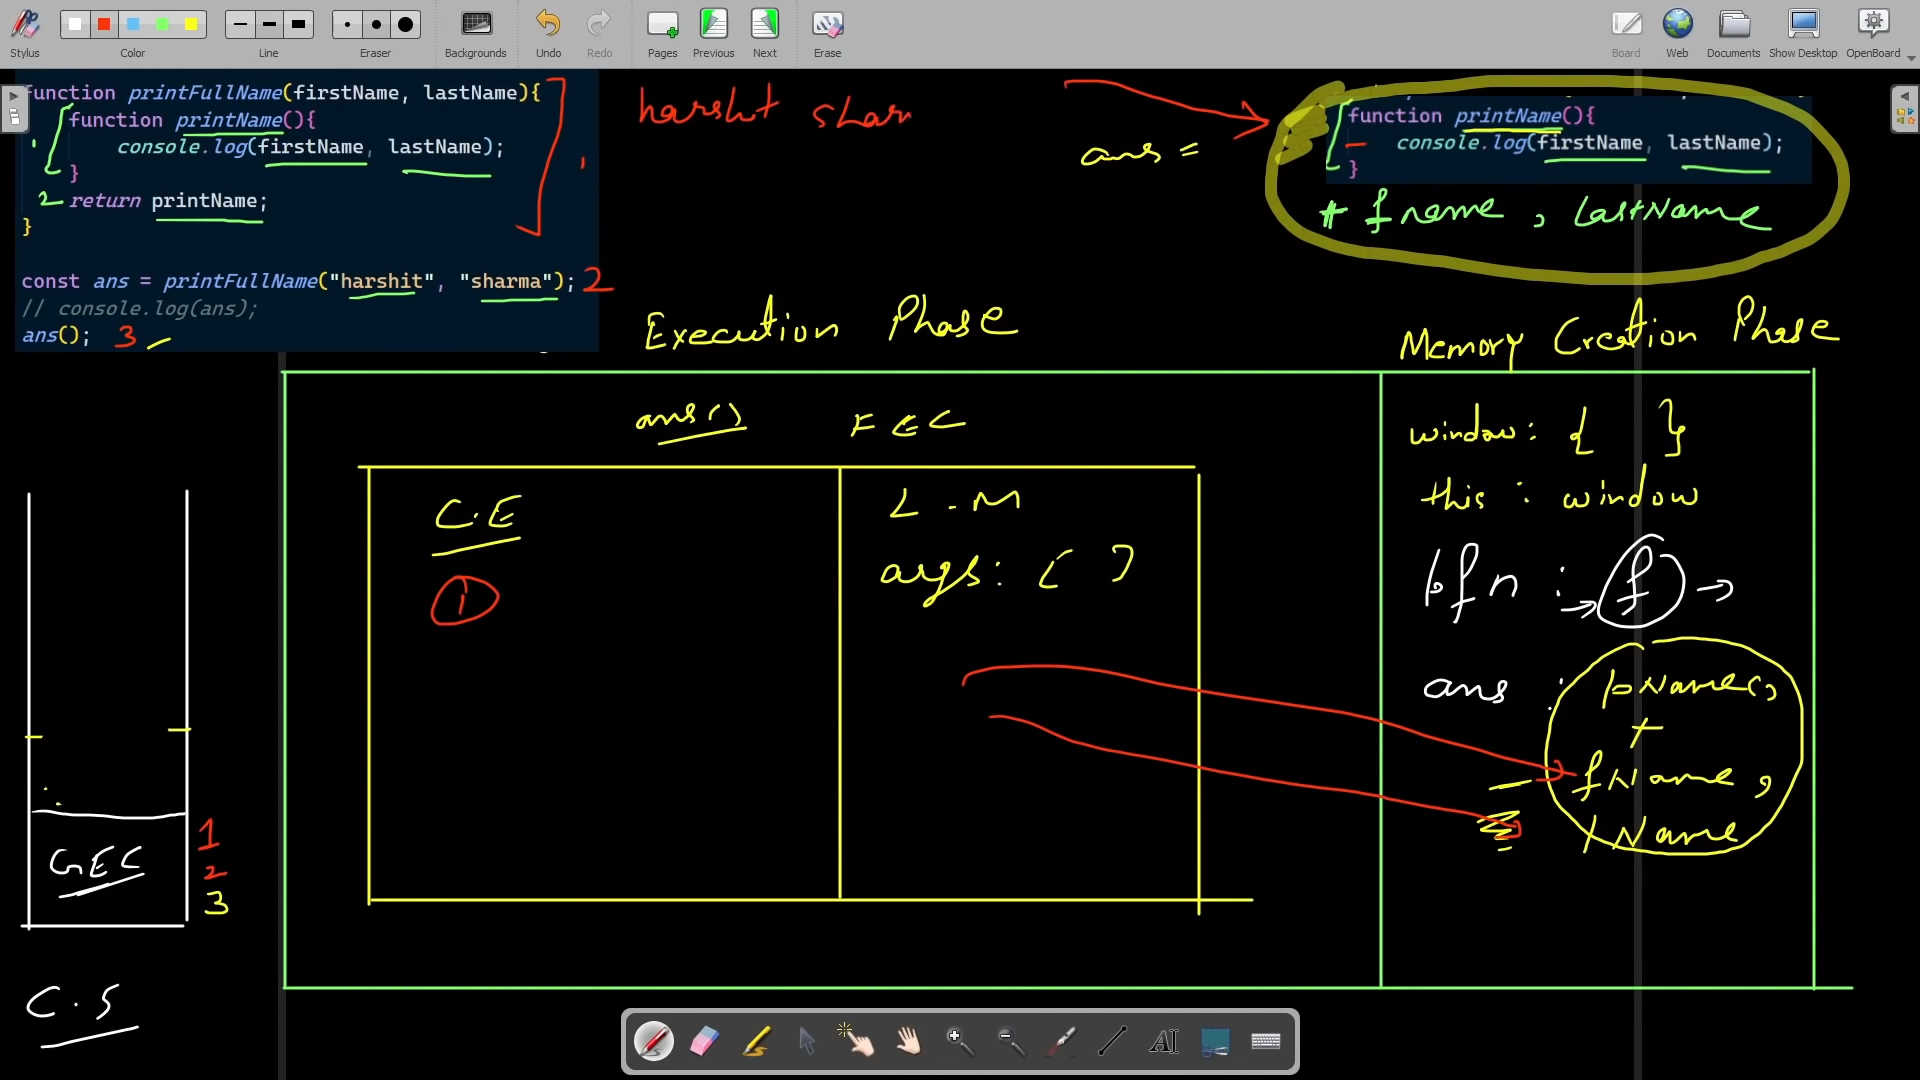 Stylus Color Line Eraser Backgrounds Undo Redo Pages Previous Next Erase Board Web Documents Show Desktop OpenBoard
function printFullName(firstName, lastName){
function printName(){
console.log(firstName, lastName);
}
2 return printName;
}
const ans = printFullName("harshit", "sharma"); 2
// console.log(ans);
ans(); 3
harshit shar
ans =
function printName(){
console.log(firstName, lastName);
}
+ fname , lastName
Execution Phase
Memory Creation Phase
ans() FEC
C.E
1
L.M
args: [ ]
window: { }
this : window
pfn : f →
ans : pName()
+
fName,
lName
GEC
1
2
3
C.S
AI